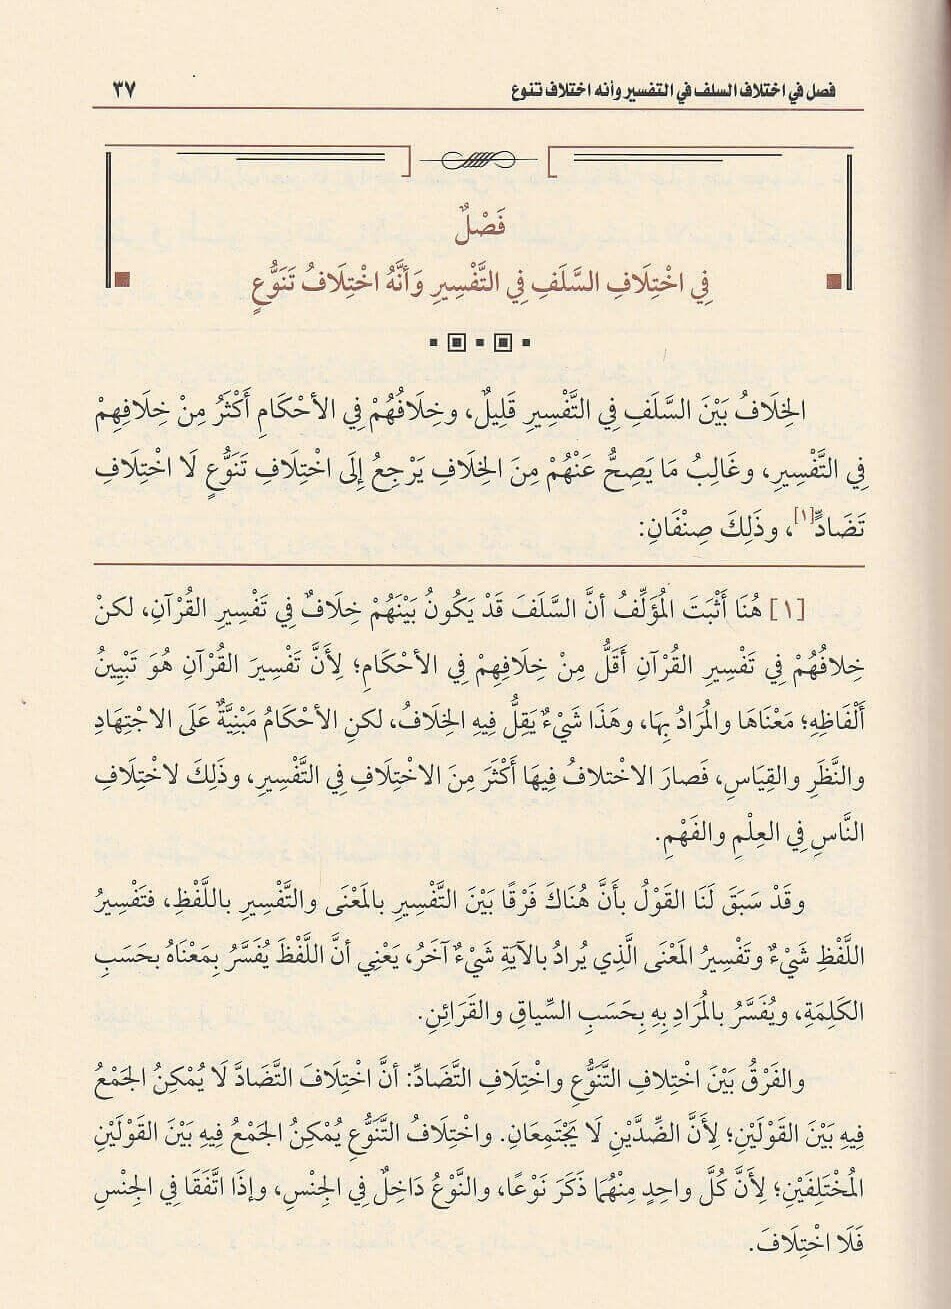 فصل في اختلاف السلف في التفسير وأنه اختلاف تنوع
٣٧
فَصْلٌ
فِي اخْتِلَافِ السَّلَفِ فِي التَّفْسِيرِ وَأَنَّهُ اخْتِلَافُ تَنَوُّعٍ
الخِلَافُ بَيْنَ السَّلَفِ فِي التَّفْسِيرِ قَلِيلٌ، وخِلَافُهُمْ فِي الأَحْكَامِ أَكْثَرُ مِنْ خِلَافِهِمْ
فِي التَّفْسِيرِ، وغَالِبُ مَا يَصِحُّ عَنْهُمْ مِنَ الخِلَافِ يَرْجِعُ إِلَى اخْتِلَافِ تَنَوُّعٍ لَا اخْتِلَافِ
تَضَادٍّ[١]، وذَلِكَ صِنْفَانِ:
[١] هُنَا أَثْبَتَ المُؤَلِّفُ أنَّ السَّلَفَ قَدْ يَكُونُ بَيْنَهُمْ خِلَافٌ فِي تَفْسِيرِ القُرْآنِ، لكنْ
خِلافُهُمْ فِي تَفْسِيرِ القُرْآنِ أَقَلُّ مِنْ خِلَافِهِمْ فِي الأَحْكَامِ؛ لِأَنَّ تَفْسِيرَ القُرْآنِ هُوَ تَبْيِينُ
أَلْفَاظِهِ؛ مَعْنَاهَا والمُرَادُ بِهَا، وهَذَا شَيْءٌ يَقِلُّ فِيهِ الخِلَافُ، لكنِ الأَحْكَامُ مَبْنِيَّةٌ عَلَى الاجْتِهَادِ
والنَّظَرِ والقِيَاسِ، فَصارَ الاخْتلافُ فِيهَا أَكْثَرَ مِنَ الاخْتِلَافِ فِي التَّفْسِيرِ، وذَلِكَ لاخْتِلَافِ
النَّاسِ فِي العِلْمِ والفَهْمِ.
وقَدْ سَبَقَ لَنَا القَوْلُ بأَنَّ هُنَاكَ فَرْقًا بَيْنَ التَّفْسِيرِ بالمَعْنَى والتَّفْسِيرِ باللَّفْظِ، فتَفْسِيرُ
اللَّفْظِ شَيْءٌ وتَفْسِيرُ المَعْنَى الَّذِي يُرادُ بالآيَةِ شَيْءٌ آخَرُ، يَعْنِي أنَّ اللَّفْظَ يُفَسَّرُ بِمَعْنَاهُ بحَسَبِ
الكَلِمَةِ، ويُفَسَّرُ بالمُرَادِ بِهِ بِحَسَبِ السِّياقِ والقَرَائِنِ.
والفَرْقُ بَيْنَ اخْتِلافِ التَّنَوُّعِ واخْتِلافِ التَّضَادِّ: أنَّ اخْتِلَافَ التَّضَادَّ لَا يُمْكِنُ الجَمْعُ
فِيهِ بَيْنَ القَوْلَينِ؛ لِأَنَّ الضِّدَّيْنِ لَا يَجْتَمِعَانِ. واخْتِلَافُ التَّنَوُّعِ يُمْكِنُ الجَمْعُ فِيهِ بَيْنَ القَوْلَيْنِ
المُخْتَلِفَيْنِ؛ لِأَنَّ كُلَّ واحِدٍ مِنْهُمَا ذَكَرَ نَوْعًا، والنَّوْعُ دَاخِلٌ فِي الجِنْسِ، وإذَا اتَّفَقَا فِي الجِنْسِ
فَلَا اخْتِلَافَ.